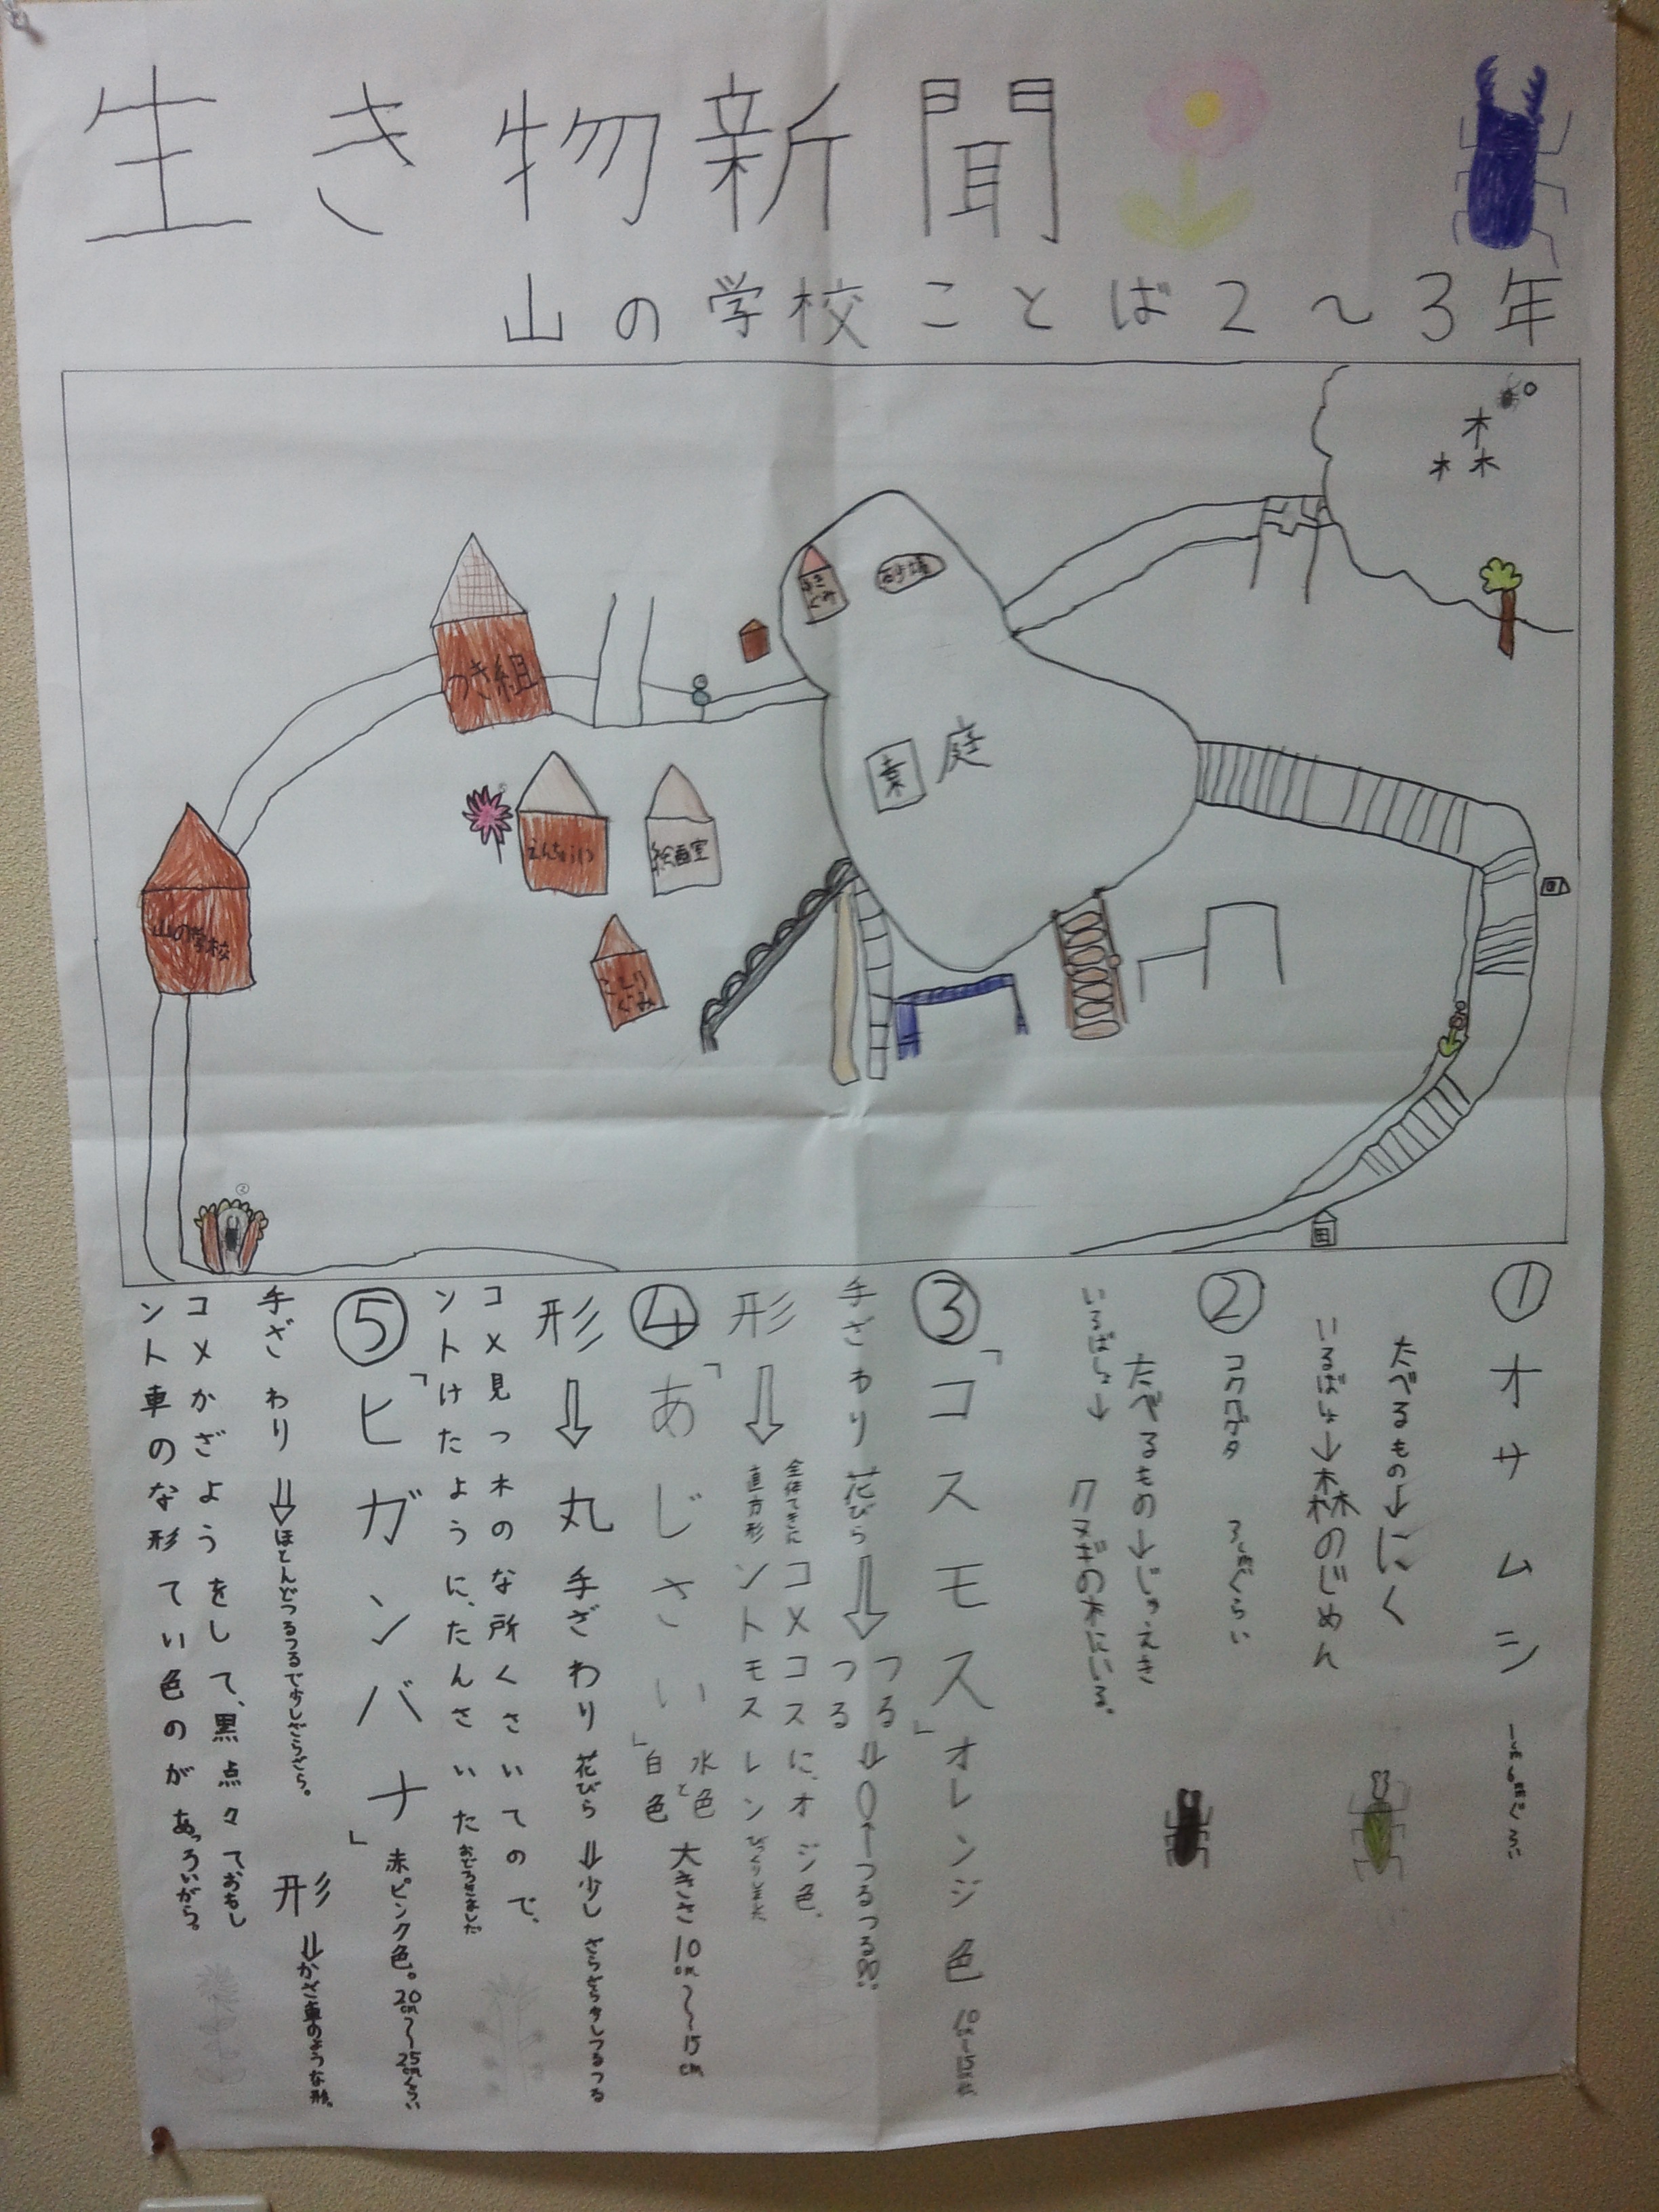 生き物新聞
山の学校ことば2〜3年
森
砂場
つき組
園庭
えんちょう
絵画室
山の学校
ことり
ぐみ
②
① オサムシ
たべるもの→にく
いるばしょ→森のじめん
② コクワガタ 3cmぐらい
たべるもの→じゅえき
いるばしょ→クヌギの木にいる。
③「コスモス」オレンジ色 10cm〜15cm
手ざわり 花びら⇒つるつる
形⇒全体てきに直方形
コメント コスモスに、オレンジ色。びっくりしました
④「あじさい」水色と白色 大きさ10cm〜15cm
形⇒丸 手ざわり 花びら⇒少しざらざら少しつるつる
コメント 見つけた木のような所に、たくさんさいていたので、おどろきました
⑤「ヒガンバナ」赤ピンク色。20cm〜25cmぐらい
手ざわり⇒ほとんどつるつるで少しざらざら。 形⇒かざ車のような形。
コメント かざ車のような形をしていて、黒色の点々があっておもしろいから。